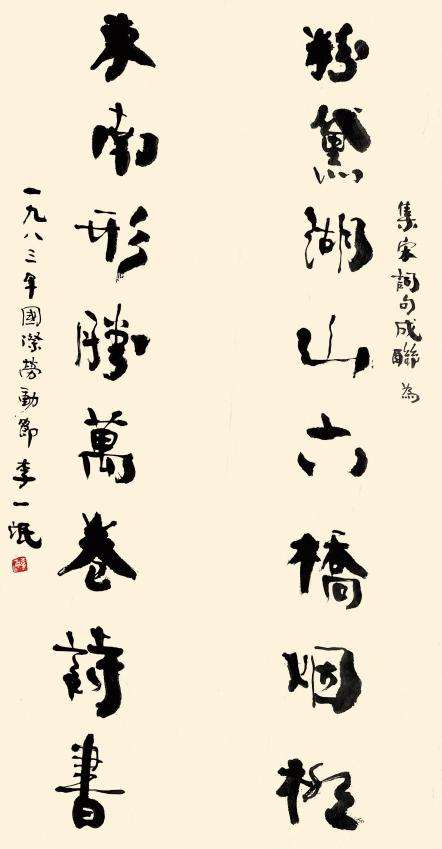 集宋詞句成聯為
粉黛湖山六橋烟柳
東南形勝萬卷詩書
一九八三年國際勞動節李一氓